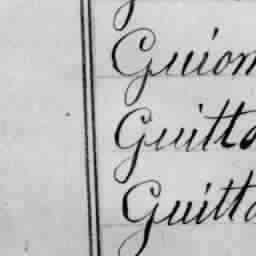 Guiom
Guitta
Guitta